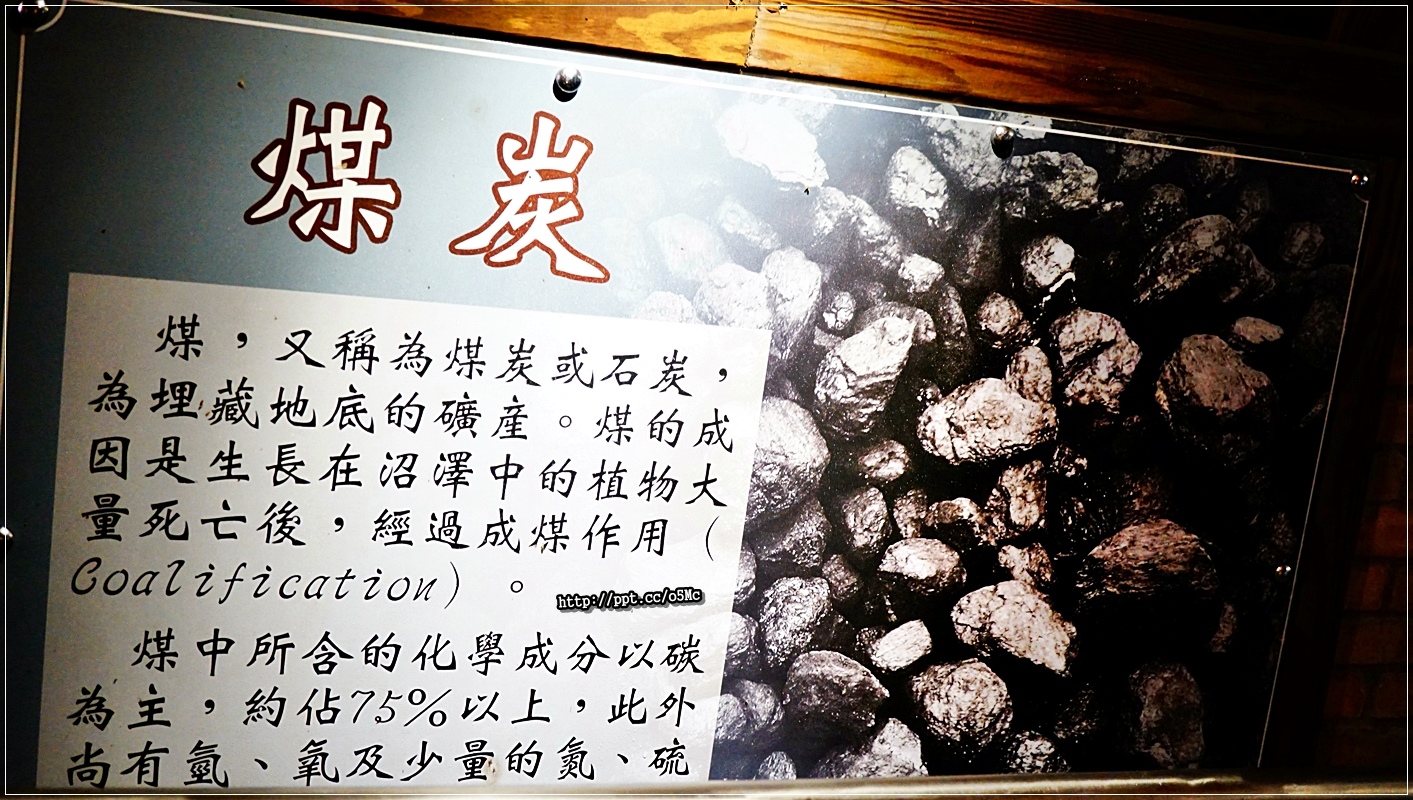 煤炭
煤，又稱為煤炭或石炭，
為埋藏地底的礦產。煤的成
因是生長在沼澤中的植物大
量死亡後，經過成煤作用（
Coalification）。
http://ppt.cc/o5Mc
煤中所含的化學成分以碳
為主，約佔75%以上，此外
尚有氫、氧及少量的氮、硫